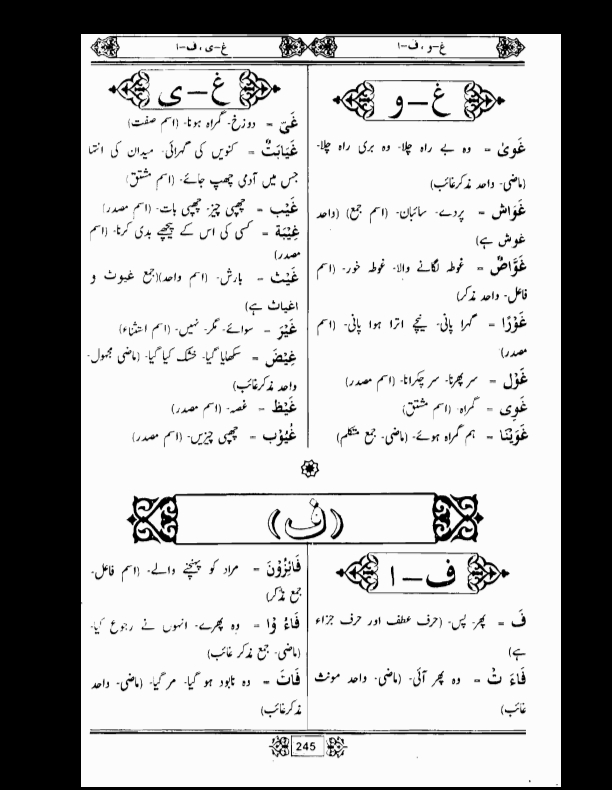 غ–و ، ف–ا
غ–ی ، ف–ا
غ – و
غَویٰ = وہ بے راہ چلا۔ وہ بری راہ چلا۔
(ماضی۔ واحد مذکر غائب)
غَوَاش = پردے۔ سائبان۔ (اسم جمع) (واحد
غوش ہے)
غَوَّاصٌ = غوطہ لگانے والا۔ غوطہ خور۔ (اسم
فاعل۔ واحد مذکر)
غَوْرًا = گہرا پانی۔ نیچے اترا ہوا پانی۔ (اسم
مصدر)
غَوْل = سر پھرنا۔ سر چکرانا۔ (اسم مصدر)
غَوِی = گمراہ۔ (اسم مشتق)
غَوَیْنَا = ہم گمراہ ہوئے۔ (ماضی۔ جمع متکلم)
غ – ی
غَیّ = دوزخ۔ گمراہ ہونا۔ (اسم صفت)
غَیَابَتٌ = کنویں کی گہرائی۔ میدان کی انتہا
جس میں آدمی چھپ جائے۔ (اسم مشتق)
غَیْب = چھپی چیز۔ چھپی بات۔ (اسم مصدر)
غِیْبَة = کسی کی اس کے پیچھے بدی کرنا۔ (اسم
مصدر)
غَیْث = بارش۔ (اسم واحد)(جمع غیوث و
اغیاث ہے)
غَیْرَ = سوائے۔ مگر۔ نہیں۔ (اسم استثناء)
غِیْضَ = سکھایا گیا۔ خشک کیا گیا۔ (ماضی مجہول۔
واحد مذکر غائب)
غَیْظ = غصہ۔ (اسم مصدر)
غُیُوْب = چھپی چیزیں۔ (اسم مصدر)
(ف)
ف – ا
فَ = پھر۔ پس۔ (حرف عطف اور حرف جزاء
ہے)
فَاءَ تْ = وہ پھر آئی۔ (ماضی۔ واحد مونث
غائب)
فَائِزُوْنَ = مراد کو پہنچنے والے۔ (اسم فاعل۔
جمع مذکر)
فَاءُ وْا = وہ پھرے۔ انہوں نے رجوع کیا۔
(ماضی۔ جمع مذکر غائب)
فَاتَ = وہ نابود ہو گیا۔ مر گیا۔ (ماضی۔ واحد
مذکر غائب)
245